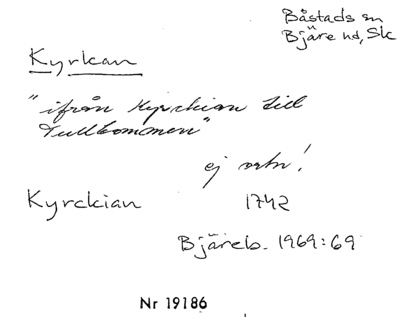 Båstads sn
Bjäre hd, Sk
Kyrkan
"ifrån Kyrckian till
Tullbommen"
ej ortn!
Kyrckian 1742
Bjäreb. 1969:69
Nr 19186